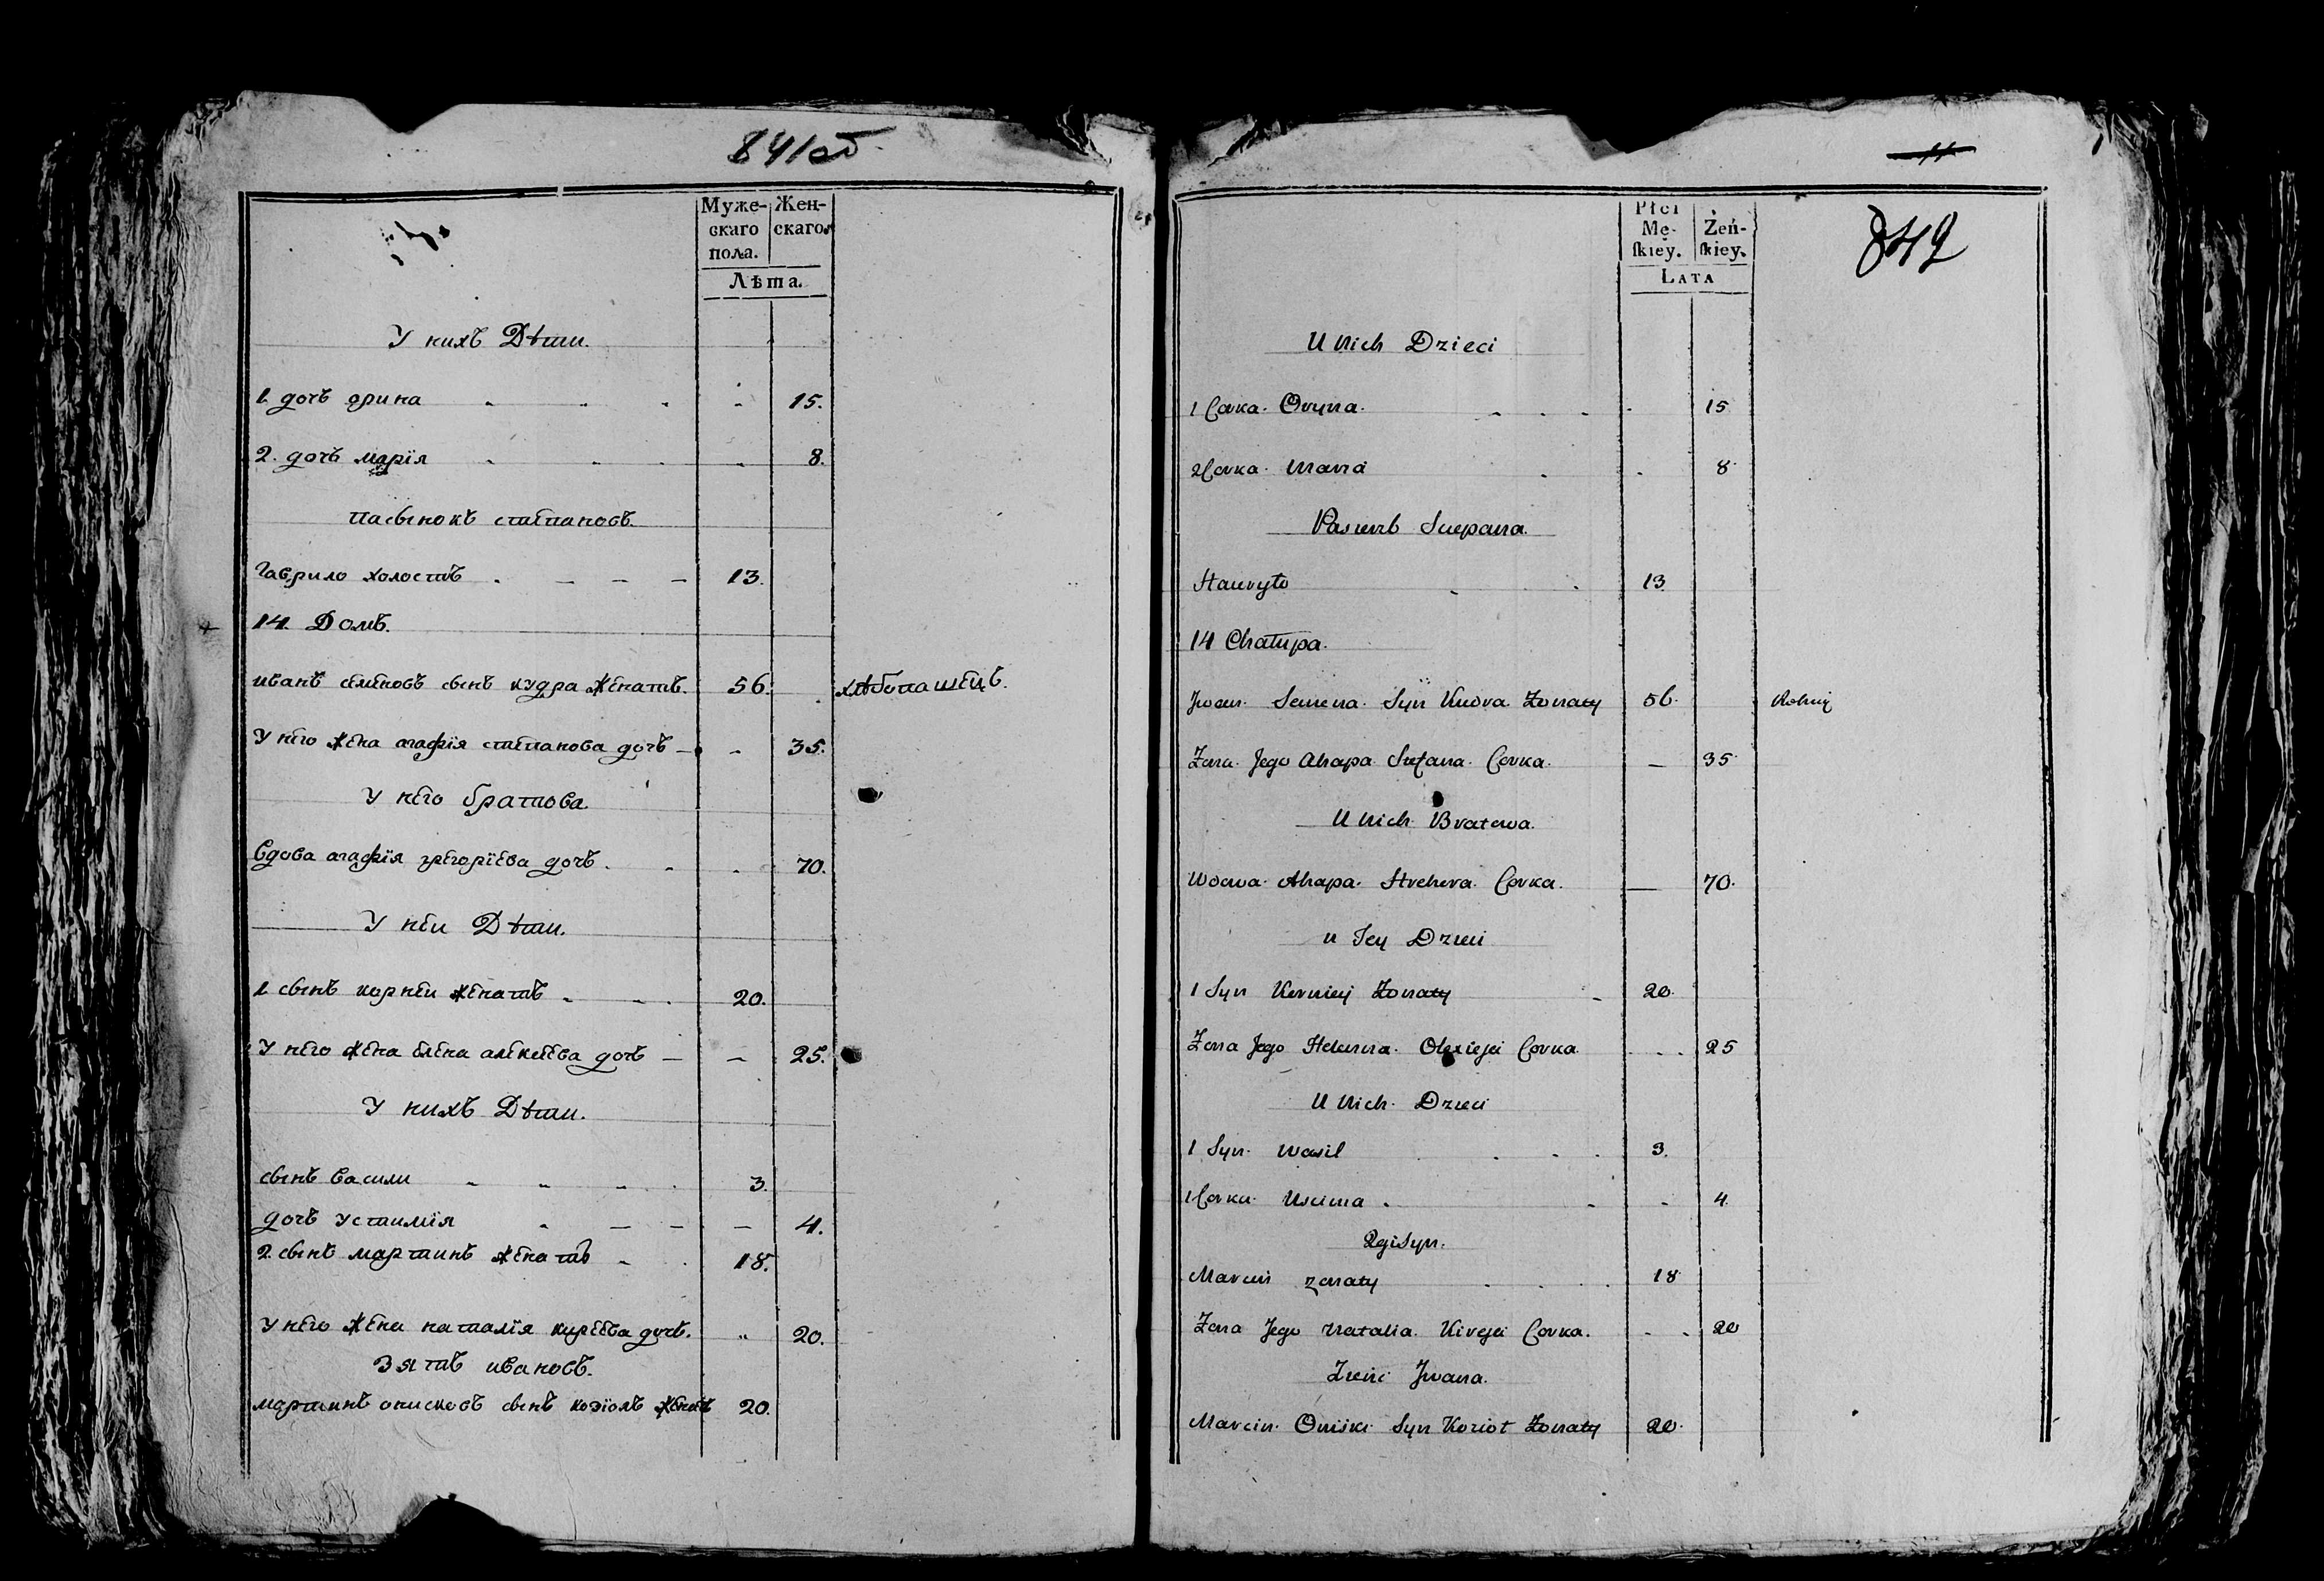 841об.
Муже- Жен-
скаго скаго
пола.
Лѣта.
У нихъ Дѣти.
1. дочъ орина 15.
2. дочъ марїя 8.
пасынокъ степановъ.
Гаврило холостъ 13.
14. Домъ.
иванъ семеновъ сынъ кудра женатъ. 56. хлѣбопашецъ.
У него жена агафїя степанова дочъ 35.
У него братова.
Вдова агафїя григорїева дочъ 70.
У неи Дѣти.
1. сынъ корнеи женатъ 20.
У него жена елена алексеева дочъ 25.
У нихъ Дѣти.
сынъ васили 3.
дочъ устимїя 4.
2. сынъ мартинъ женатъ 18.
У него жена наталїя киреева дочъ. 20.
Зятъ ивановъ.
мартинъ онисковъ сынъ козїолъ женатъ 20.
11
842
Płci
Mę- Żeń-
ſkiey. ſkiey.
Lata
U Nich Dzieci
1 Corka. Oryna. 15
2 Corka. Maria 8
Pasierb Stepana.
Hawryło 13
14 Chałupa.
Jwan. Semena. Syn Kudra Żonaty 56. Rolnik
Żona. Jego Ahapa. Stefana. Corka. 35
U Nich Bratowa.
Wdowa. Ahapa. Hrehora. Corka. 70.
u Jey Dzieci
1 Syn Korniej Żonaty 20.
Żona Jego Helenna. Olexieja Corka 25
U Nich. Dzieci
1 Syn. Wasil 3.
1 Corka. Uscima 4
2gi Syn.
Marcin żonaty 18
Żona Jego Natalia. Kireja Corka. 20
Zienc Jwana.
Marcin. Oniski Syn Kozioł Żonaty 20.